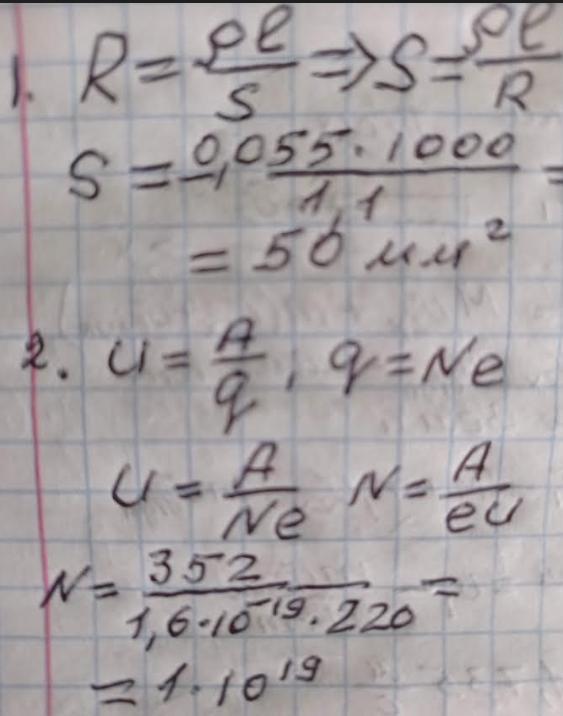 1. R = ρl/S => S = ρl/R
S = 0,055·1000/1,1 =
= 50 мм²
2. U = A/q, q = Ne
U = A/Ne N = A/eU
N = 352/1,6·10⁻¹⁹·220 =
= 1·10¹⁹